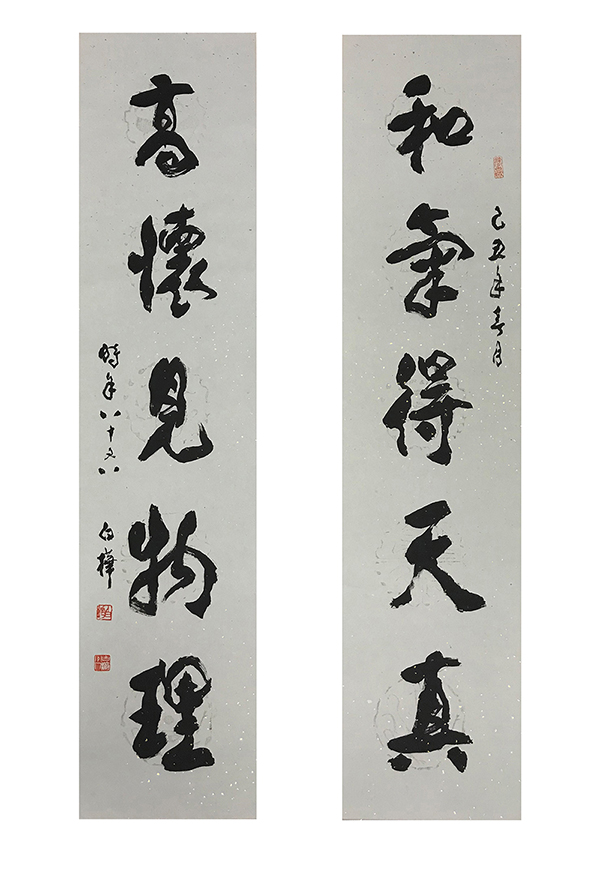 己丑年春月
和氣得天真
高懷見物理
時年八十又八 白樺